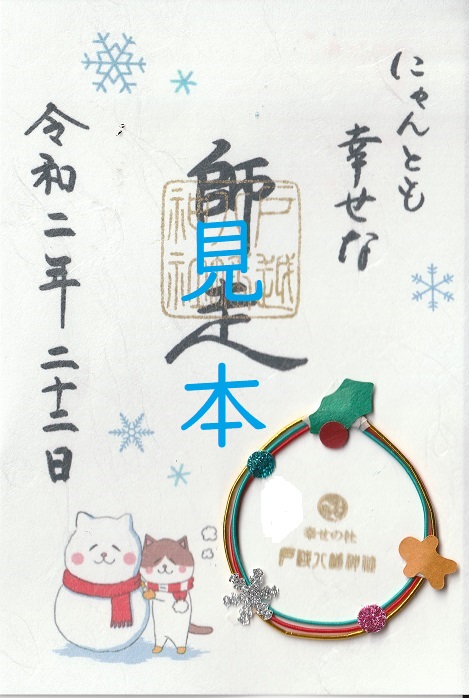 にゃんとも
幸せな
師走
戸越
八幡
神社
見本
令和二年 二十二日
幸せの杜
戸越八幡神社